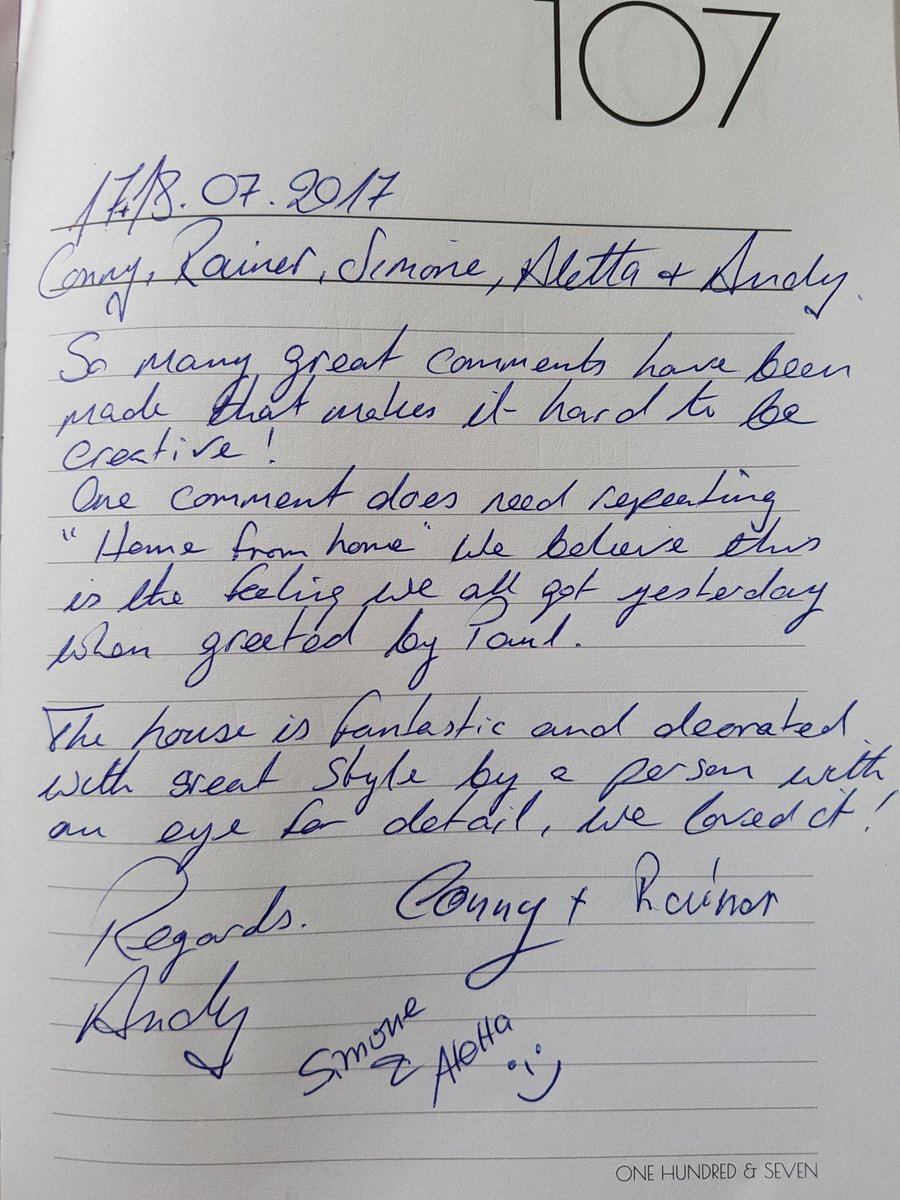 107
17+18.07.2017
Conny, Rainer, Simone, Aletta + Andy.
So many great comments have been
made that makes it hard to be
creative!
One comment does need repeating
"Home from home" We believe this
is the feeling we all got yesterday
when greeted by Paul.
The house is fantastic and decorated
with great style by a person with
an eye for detail, we loved it!
Regards. Conny + Rainer
Andy
Simone
& Aletta :-)
ONE HUNDRED & SEVEN